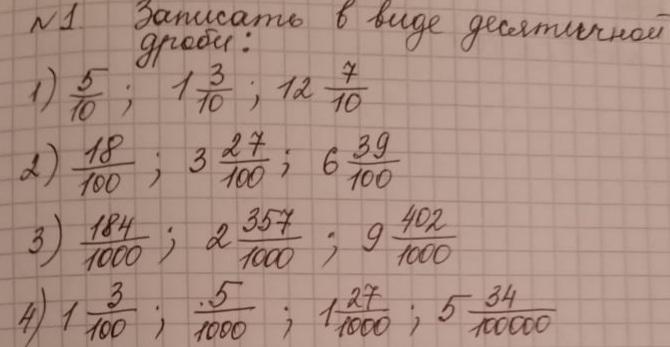 №1 Записать в виде десятичной
дроби:
1) 5/10 ; 1 3/10 ; 12 7/10
2) 18/100 ; 3 27/100 ; 6 39/100
3) 184/1000 ; 2 357/1000 ; 9 402/1000
4) 1 3/100 ; 5/1000 ; 1 27/1000 ; 5 34/100000